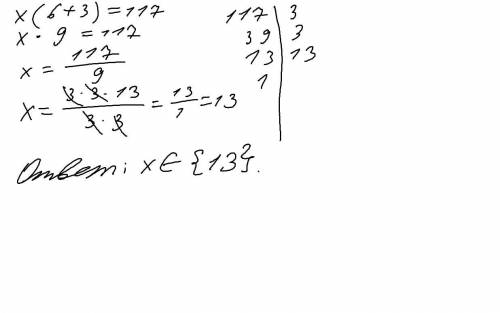 x(6+3)=117
x · 9 = 117
x = 117/9
X = 3·3·13/3·3 = 13/1 = 13
117 | 3
39 | 3
13 | 13
1 |
Ответ: x ∈ {13}.